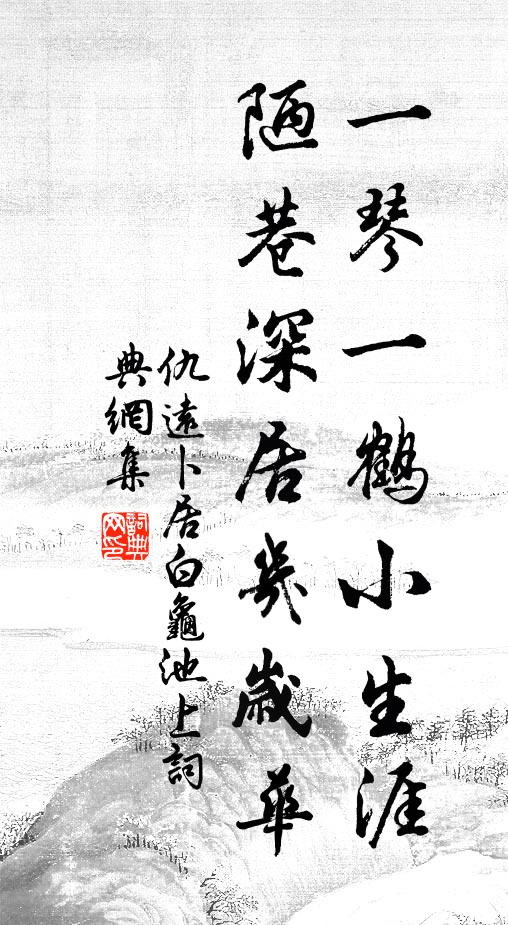 一琴一鶴小生涯
陋巷深居幾歲華
仇遠卜居白龜池上詞
典網集
詞典
网印